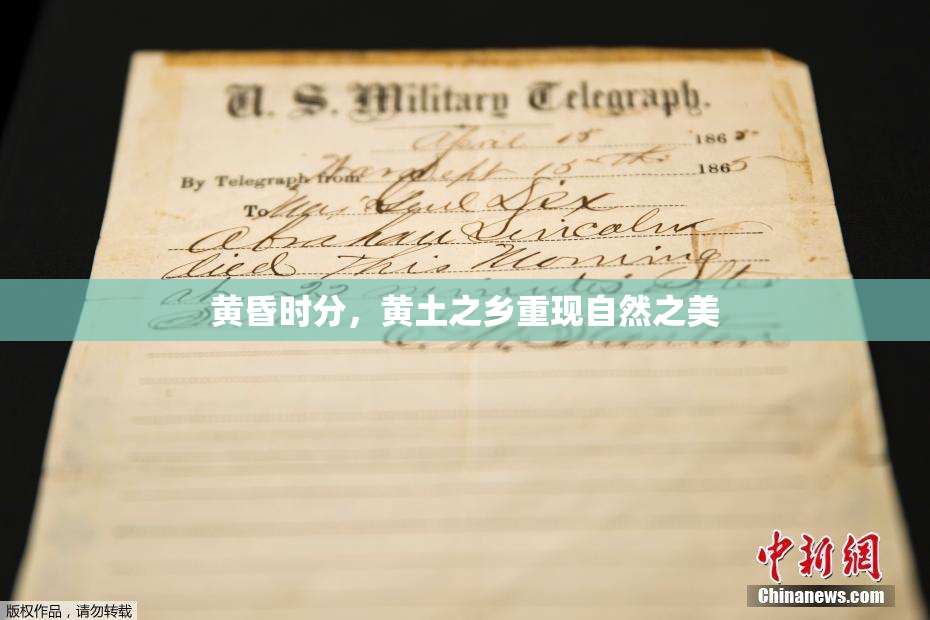 U. S. Military Telegraph.
April 15 1865
By Telegraph from War Dept 15th 1865
To Maj Genl Dix
Abraham Lincoln
died This Morning
at 22 minutes after
黄昏时分，黄土之乡重现自然之美
E. M. Stanton
中新网
Chinanews.com
版权作品，请勿转载